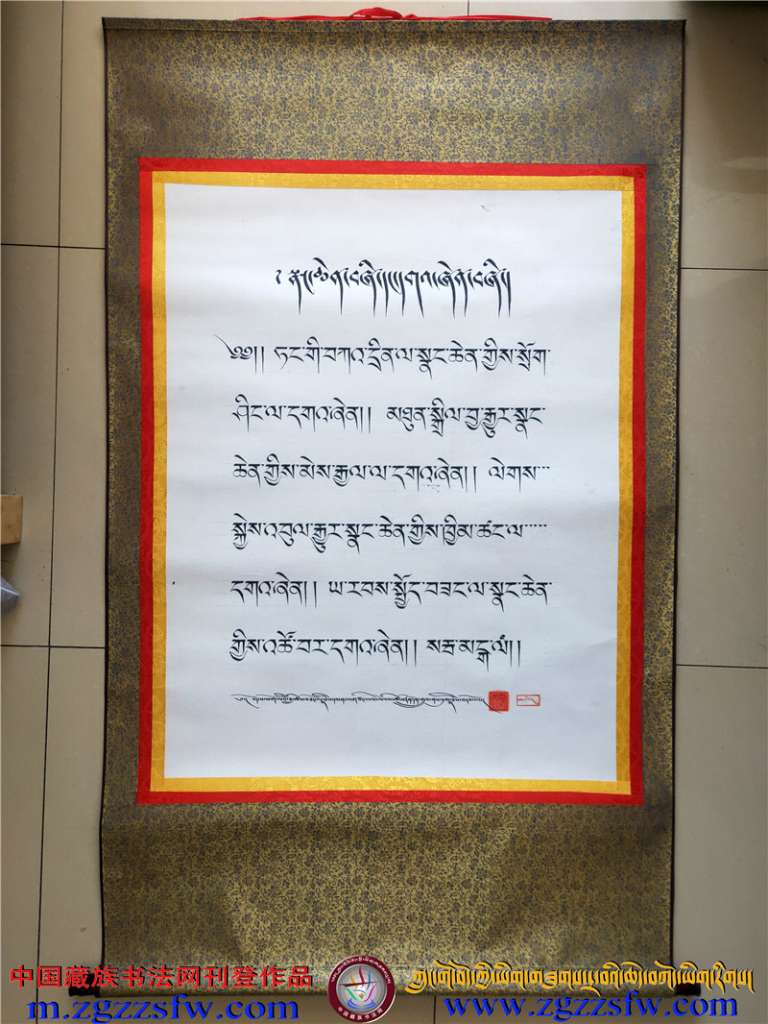 ༄༅།། ཏང་གི་བཀའ་དྲིན་ལ་སྣང་ཆེན་གྱིས་སྲོག་
ཤིང་ལ་དགའ་ཞེན།། མཐུན་སྒྲིལ་བྱ་རྒྱུར་སྣང་
ཆེན་གྱིས་མེས་རྒྱལ་ལ་དགའ་ཞེན།། ལེགས་
སྐྱེས་འབུལ་རྒྱུར་སྣང་ཆེན་གྱིས་ཁྱིམ་ཚང་ལ་
དགའ་ཞེན།། ཡ་རབས་སྤྱོད་བཟང་ལ་སྣང་ཆེན་
གྱིས་འཚོ་བར་དགའ་ཞེན།། སརྦ་མངྒ་ལཾ།།
中国藏族书法网刊登作品
m.zgzzsfw.com
www.zgzzsfw.com